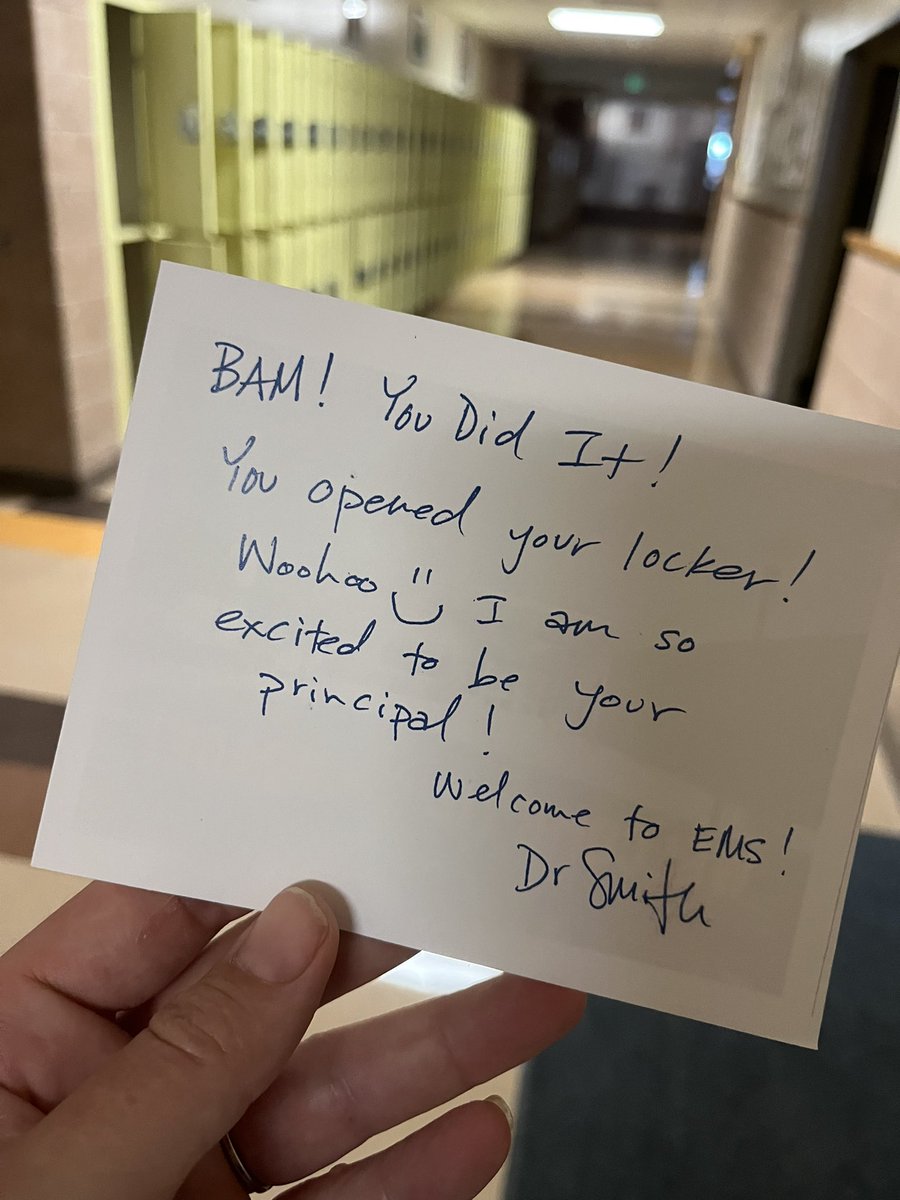 BAM! You Did It!
You opened your locker!
Woohoo I am so
excited to be your
principal!
Welcome to EMS!
Dr Smith